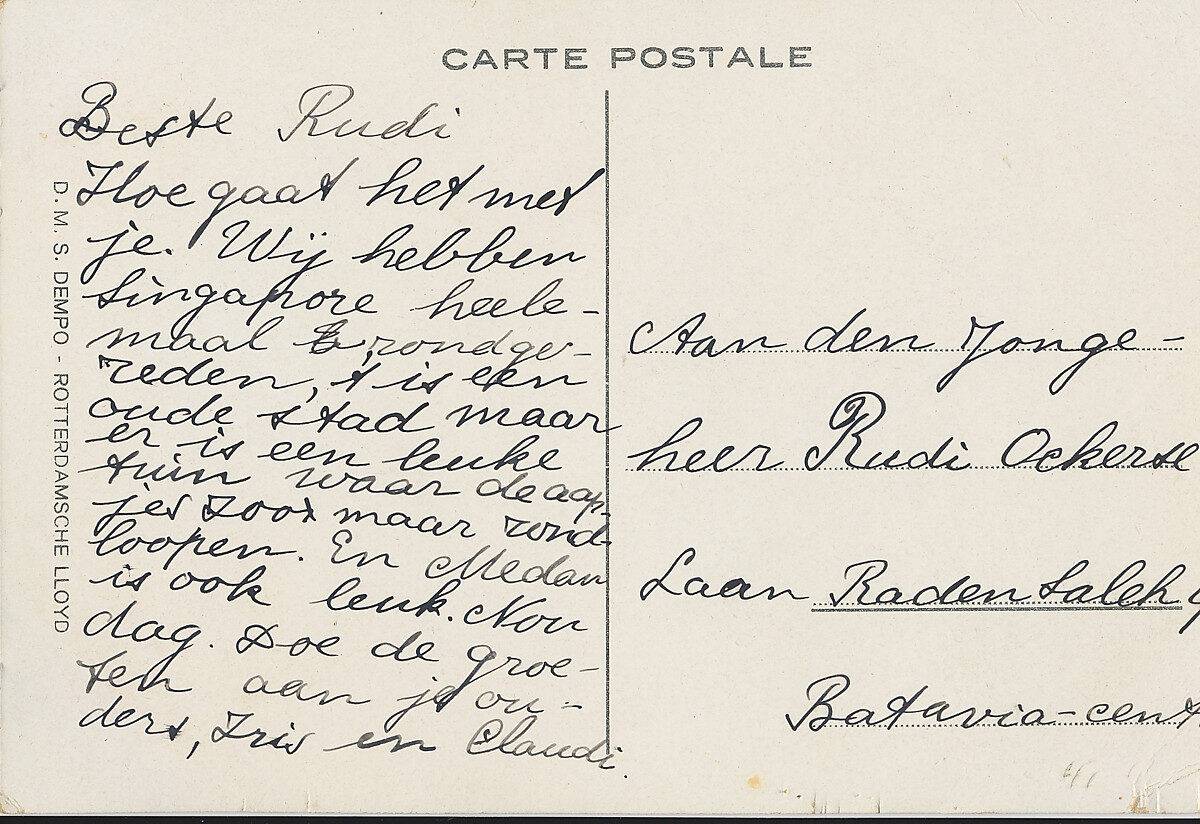 CARTE POSTALE
Beste Rudi
Hoe gaat het met
je. Wij hebben
Singapore heele-
maal rondge-
reden, 't is een
oude stad maar
er is een leuke
tuin waar de aap-
jes zoo maar rond-
loopen. En Medan
is ook leuk. Nou
dag. Doe de groe-
ten aan je ou-
ders, Iris en Claudi.
D. M. S. DEMPO - ROTTERDAMSCHE LLOYD
Aan den Jonge-
heer Rudi Ockerse
Laan Raden Saleh
Batavia-cent